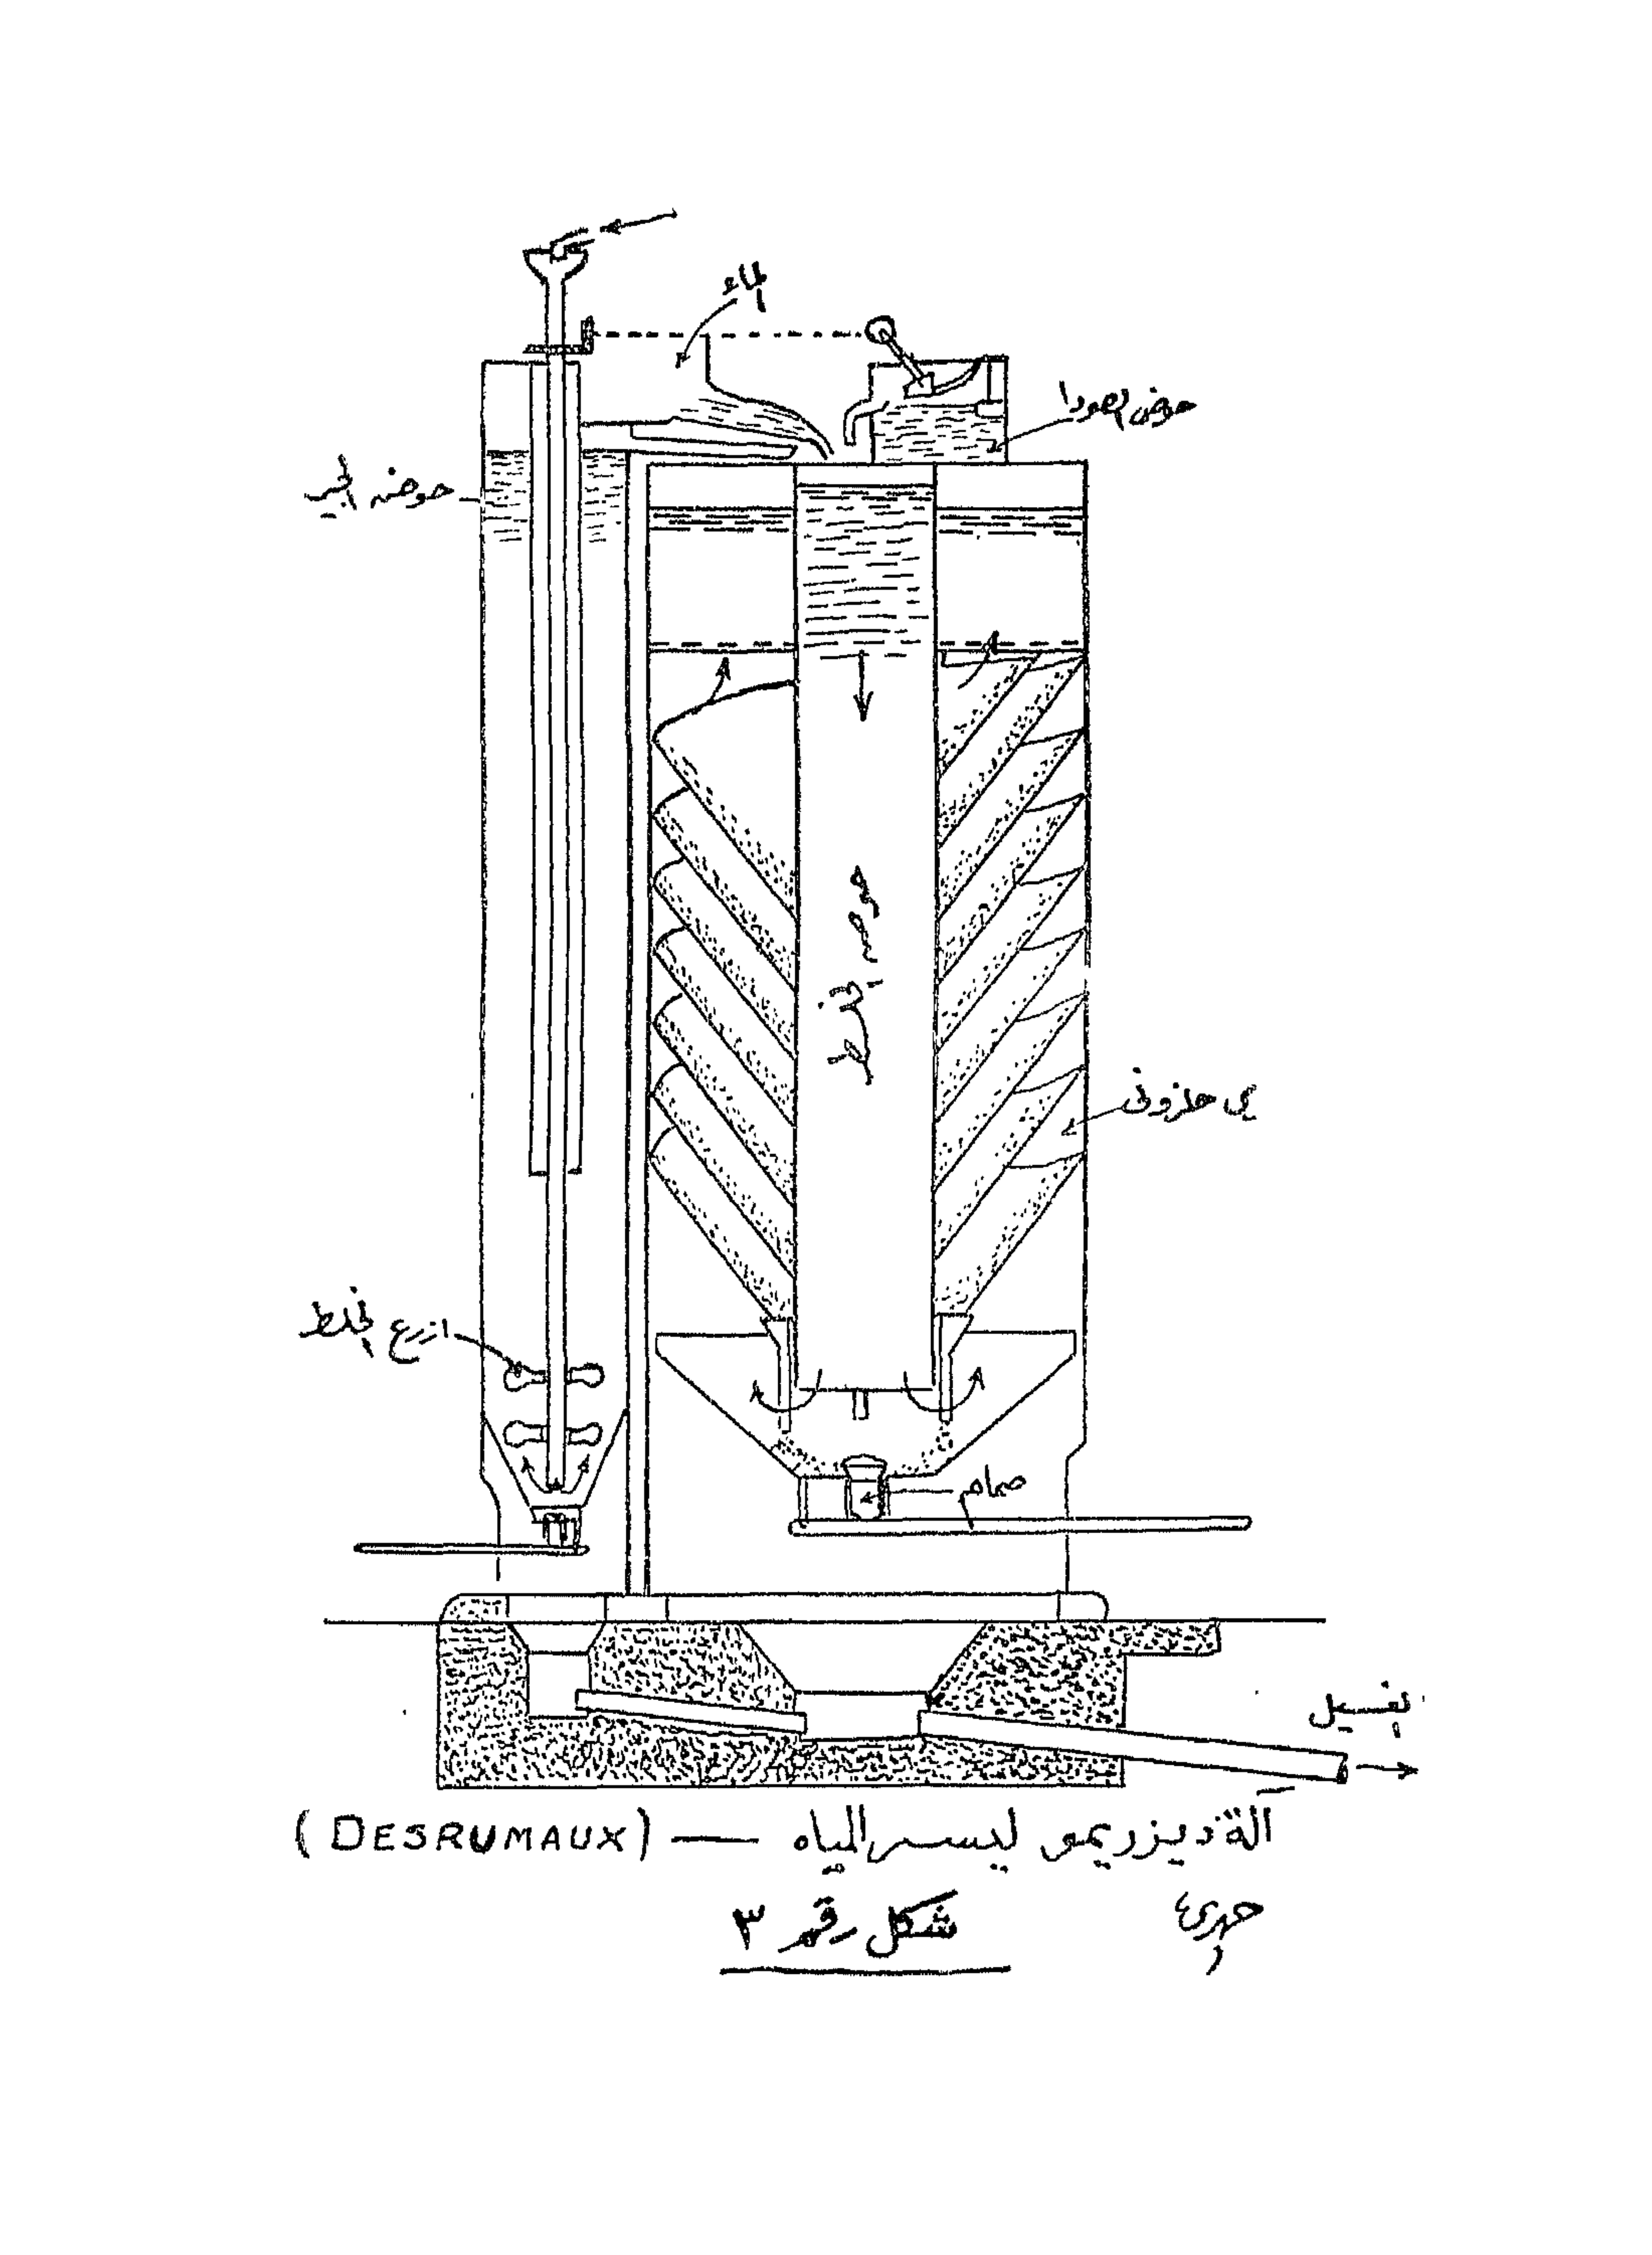 الماء
حوض الصودا
حوض الجير
حوض الخلط
حلزونى
ازرع الخلط
صمام
لغسيل
آلة ديزريمو ليسر المياه — (DESRUMAUX)
شكل رقم ٣